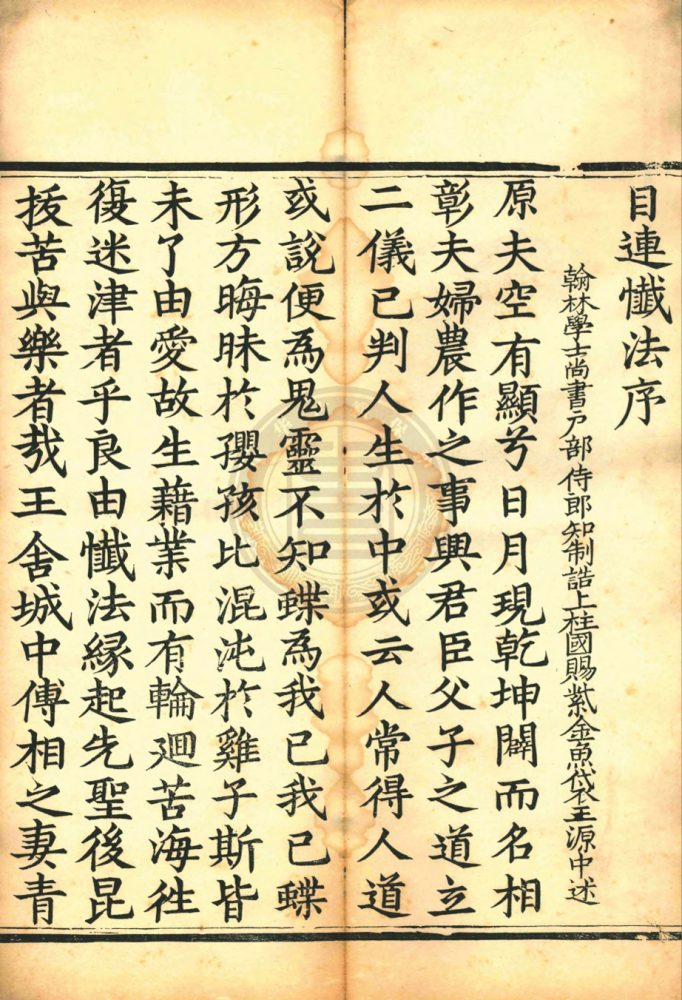 目連懺法序
翰林學士尚書戶部侍郎知制誥上柱國賜紫金魚袋王源中述
原夫空有顯兮日月現乾坤闢而名相
彰夫婦農作之事興君臣父子之道立
二儀已判人生於中或云人常得人道
或說便為鬼靈不知蝶為我已我已蝶
形方晦昧於孾孩比混沌於雞子斯皆
未了由愛故生藉業而有輪迴苦海往
復迷津者乎良由懺法緣起先聖後昆
拔苦與樂者哉王舍城中傅相之妻青